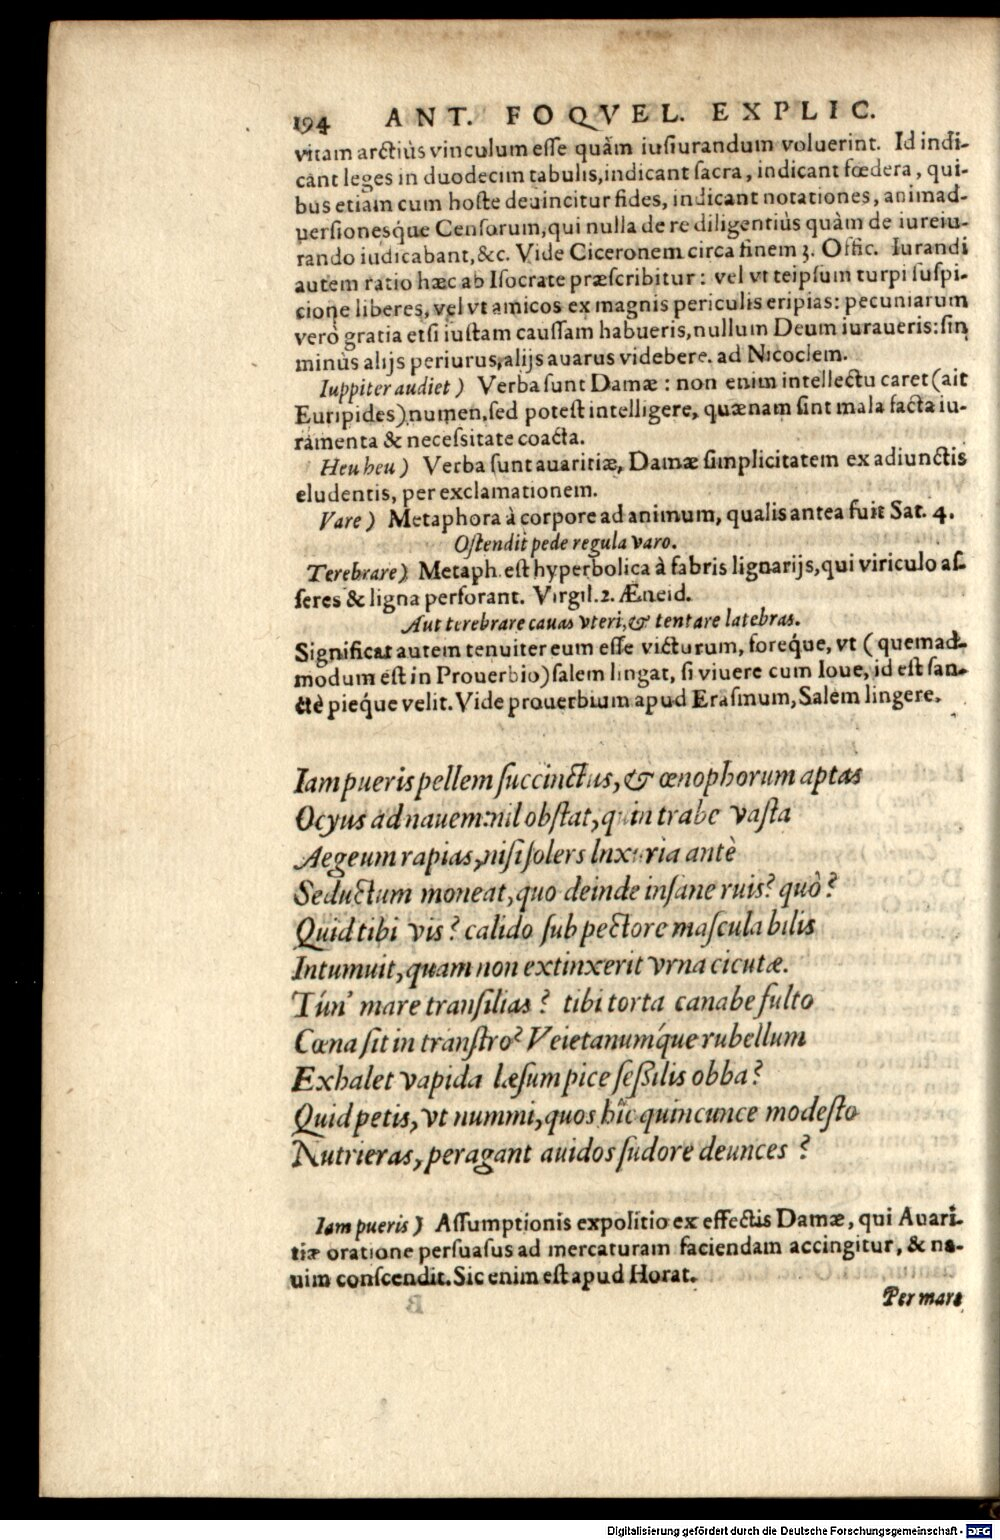 194 ANT. FOQVEL. EXPLIC.
vitam arctiùs vinculum esse quàm iusiurandum voluerint. Id indi-
cant leges in duodecim tabulis, indicant sacra, indicant fœdera, qui-
bus etiam cum hoste deuincitur fides, indicant notationes, animad-
uersionesq́ue Censorum, qui nulla de re diligentiùs quàm de iureiu-
rando iudicabant, &c. Vide Ciceronem circa finem 3. Offic. Iurandi
autem ratio hæc ab Isocrate præscribitur: vel vt teipsum turpi suspi-
cione liberes, vel vt amicos ex magnis periculis eripias: pecuniarum
verò gratia etsi iustam caussam habueris, nullum Deum iuraueris: sin
minùs alijs periurus, alijs auarus videbere. ad Nicoclem.
Iuppiter audiet) Verba sunt Damæ: non enim intellectu caret (ait
Euripides) numen, sed potest intelligere, quænam sint mala facta iu-
ramenta & necessitate coacta.
Heu heu) Verba sunt auaritiæ, Damæ simplicitatem ex adiunctis
eludentis, per exclamationem.
Vare) Metaphora à corpore ad animum, qualis antea fuit Sat. 4.
Ostendit pede regula varo.
Terebrare) Metaph. est hyperbolica à fabris lignarijs, qui viriculo as-
seres & ligna perforant. Virgil. 2. Æneid.
Aut terebrare cauas vteri, & tentare latebras.
Significat autem tenuiter eum esse victurum, foreq́ue, vt (quemad-
modum est in Prouerbio) salem lingat, si viuere cum Ioue, id est san-
ctè pieq́ue velit. Vide prouerbium apud Erasmum, Salem lingere.
Iam pueris pellem succinctus, & œnophorum aptas
Ocyus ad nauem: nil obstat, quin trabe vasta
Aegeum rapias, nisi solers lnxuria antè
Seductum moneat, quo deinde insane ruis? quò?
Quid tibi vis? calido sub pectore mascula bilis
Intumuit, quam non extinxerit vrna cicutæ.
Tún' mare transilias? tibi torta canabe fulto
Cœna sit in transtro? Veietanumq́ue rubellum
Exhalet vapida læsum pice sessilis obba?
Quid petis, vt nummi, quos hîc quincunce modesto
Nutrieras, peragant auidos sudore deunces?
Iam pueris) Assumptionis expolitio ex effectis Damæ, qui Auari-
tiæ oratione persuasus ad mercaturam faciendam accingitur, & na-
uim conscendit. Sic enim est apud Horat.
Per mare
Digitalisierung gefördert durch die Deutsche Forschungsgemeinschaft - DFG